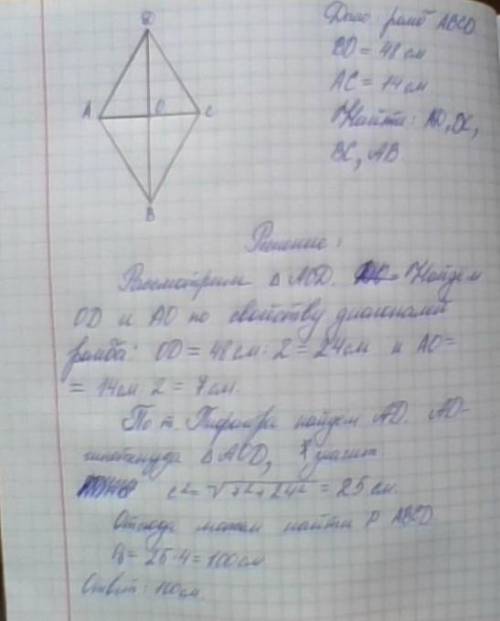 D
A
O
C
B
Дано: ромб ABCD
BD = 48 см
AC = 14 см
Найти: AD, DC,
BC, AB.
Решение:
Рассмотрим Δ AOD. Найдем
OD и AO по свойству диагоналей
ромба: OD = 48 см : 2 = 24 см и AO =
= 14 см : 2 = 7 см.
По т. Пифагора найдем AD. AD -
гипотенуза Δ AOD, значит
c² = √7² + 24² = 25 см.
Отсюда можем найти P ABCD
P = 25 · 4 = 100 см
Ответ: 100 см.